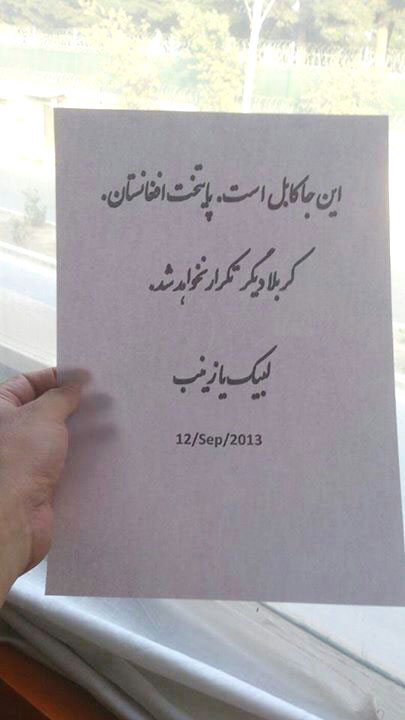 این جا کابل است. پایتخت افغانستان.
کربلا دیگر تکرار نخواهد شد.
لبیک یا زینب
12/Sep/2013